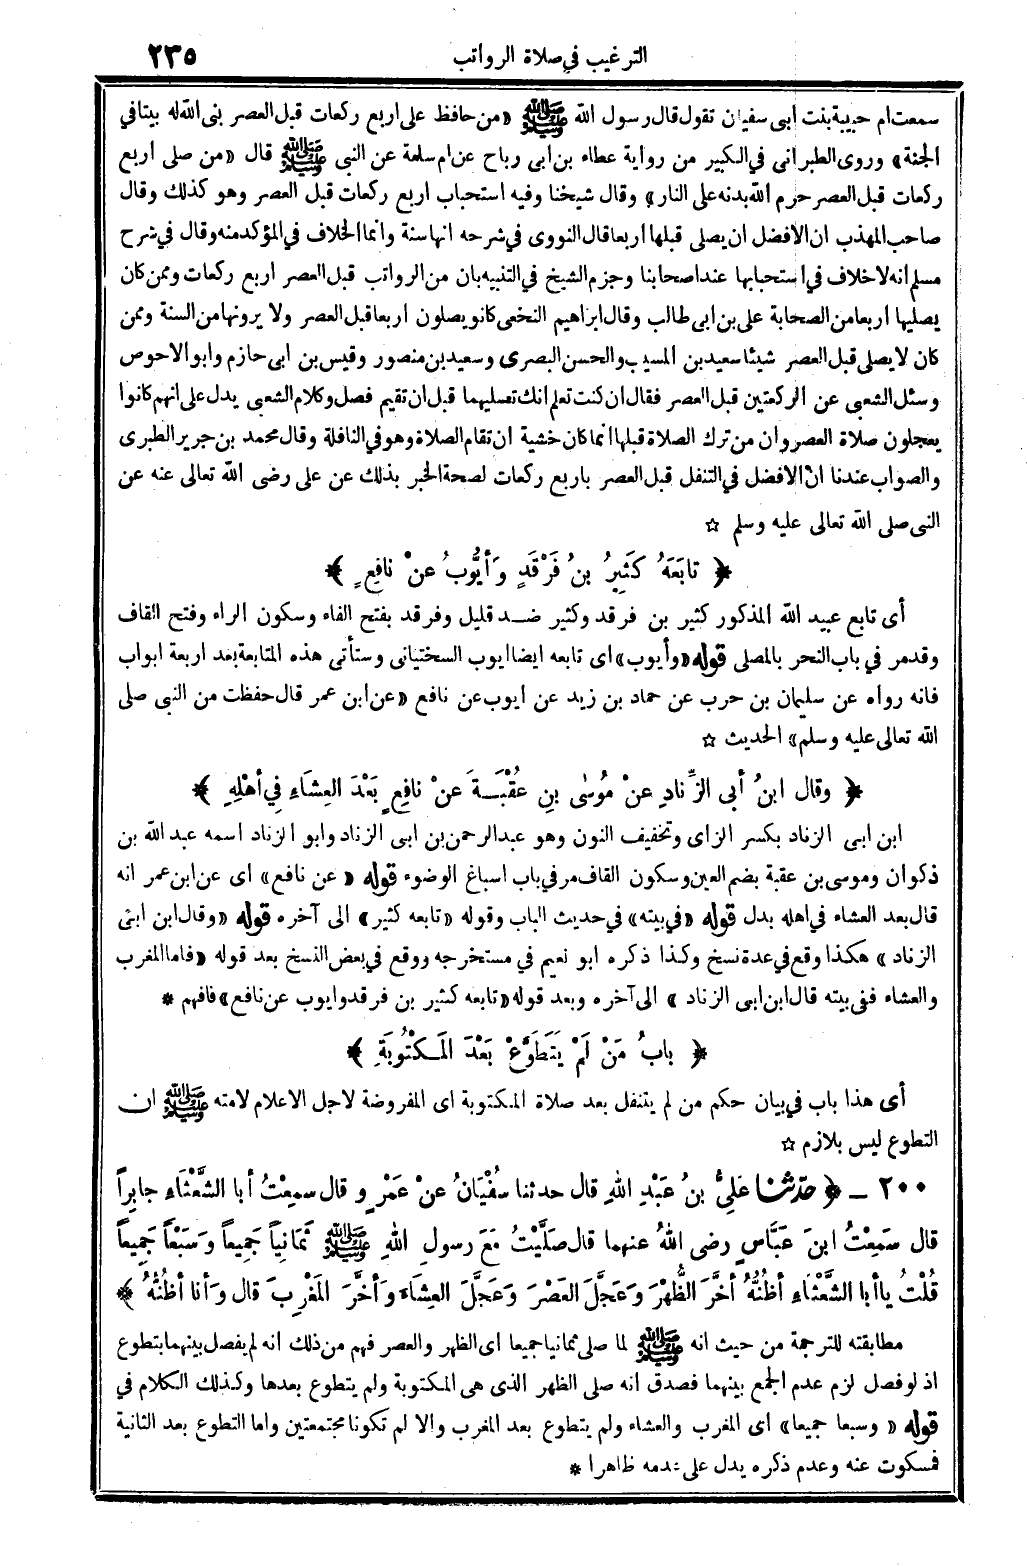 الترغيب في صلاة الرواتب ٢٣٥
سمعت ام حبيبة بنت ابى سفيان تقول قال رسول الله ﷺ «من حافظ على اربع ركعات قبل العصر بنى الله له بيتا في
الجنة» وروى الطبرانى في الكبير من رواية عطاء بن ابى رباح عن ام سلمة عن النبى ﷺ قال «من صلى اربع
ركعات قبل العصر حرم الله بدنه على النار» وقال شيخنا وفيه استحباب اربع ركعات قبل العصر وهو كذلك وقال
صاحب المهذب ان الافضل ان يصلى قبلها اربعا قال النووى في شرحه انها سنة وانما الخلاف في المؤكد منه وقال في شرح
مسلم انه لا خلاف في استحبابها عند اصحابنا وجزم الشيخ في التنبيه بان من الرواتب قبل العصر اربع ركعات وممن كان
يصليها اربعا من الصحابة على بن ابى طالب وقال ابراهيم النخعى كانو يصلون اربعا قبل العصر ولا يرونها من السنة وممن
كان لا يصلى قبل العصر شيئا سعيد بن المسيب والحسن البصرى وسعيد بن منصور وقيس بن ابى حازم وابو الاحوص
وسئل الشعبى عن الركعتين قبل العصر فقال ان كنت تعلم انك تصليهما قبل ان تقيم فصل وكلام الشعبى يدل على انهم كانوا
يعجلون صلاة العصر وان من ترك الصلاة قبلها انما كان خشية ان تقام الصلاة وهو في النافلة وقال محمد بن جرير الطبرى
والصواب عندنا ان الافضل في التنفل قبل العصر باربع ركعات لصحة الخبر بذلك عن على رضى الله تعالى عنه عن
النبى صلى الله تعالى عليه وسلم ☆
﴿ تابَعَهُ كَثِيرُ بنُ فَرْقَدٍ وَأيُّوبُ عنْ نافِعٍ ﴾
أى تابع عبيد الله المذكور كثير بن فرقد وكثير ضد قليل وفرقد بفتح الفاء وسكون الراء وفتح القاف
وقد مر في باب النحر بالمصلى قوله «وأيوب» اى تابعه ايضا ايوب السختيانى وستأتى هذه المتابعة بعد اربعة ابواب
فانه رواه عن سليمان بن حرب عن حماد بن زيد عن ايوب عن نافع «عن ابن عمر قال حفظت من النبى صلى
الله تعالى عليه وسلم» الحديث ☆
﴿ وقال ابنُ أبى الزِّنادِ عنْ مُوسٰى بنِ عُقْبَةَ عنْ نافِعٍ بَعْدَ العِشَاءِ فِي أهْلِهِ ﴾
ابن ابى الزناد بكسر الزاى وتخفيف النون وهو عبد الرحمن بن ابى الزناد وابو الزناد اسمه عبد الله بن
ذكوان وموسى بن عقبة بضم العين وسكون القاف مر في باب اسباغ الوضوء قوله «عن نافع» اى عن ابن عمر انه
قال بعد العشاء في اهله بدل قوله «في بيته» في حديث الباب وقوله «تابعه كثير» الى آخره قوله «وقال ابن ابى
الزناد» هكذا وقع في عدة نسخ وكذا ذكره ابو نعيم في مستخرجه ووقع في بعض النسخ بعد قوله «فاما المغرب
والعشاء ففى بيته قال ابن ابى الزناد» الى آخره وبعد قوله «تابعه كثير بن فرقد وايوب عن نافع» فافهم *
﴿ بابُ مَنْ لَمْ يَتَطَوَّعْ بَعْدَ المَكْتُوبَةِ ﴾
أى هذا باب في بيان حكم من لم يتنفل بعد صلاة المكتوبة اى المفروضة لاجل الاعلام لامته ﷺ ان
التطوع ليس بلازم ☆
٢٠٠ ـ ﴿ حدثنا عَلِىُّ بنُ عَبْدِ اللهِ قال حدثنا سُفْيَانُ عنْ عَمْرٍو قال سمِعْتُ أبا الشَّعْثَاءِ جابِراً
قال سَمِعْتُ ابنَ عَبَّاسٍ رضى اللهُ عنهما قال صَلَّيْتُ مَعَ رسولِ اللهِ ﷺ ثَمَانِياً جَمِيعاً وَسَبْعاً جَمِيعاً
قُلْتُ ياأبا الشَّعْثَاءِ أظُنُّهُ أخَّرَ الظُّهْرَ وَعَجَّلَ العَصْرَ وَعَجَّلَ العِشَاءَ وَأخَّرَ المَغْرِبَ قال وَأنا أظُنُّهُ ﴾
مطابقته للترجمة من حيث انه ﷺ لما صلى ثمانيا جميعا اى الظهر والعصر فهم من ذلك انه لم يفصل بينهما بتطوع
اذ لو فصل لزم عدم الجمع بينهما فصدق انه صلى الظهر الذى هى المكتوبة ولم يتطوع بعدها وكذلك الكلام في
قوله «وسبعا جميعا» اى المغرب والعشاء ولم يتطوع بعد المغرب والا لم تكونا مجتمعتين واما التطوع بعد الثانية
فمسكوت عنه وعدم ذكره يدل على عدمه ظاهرا *